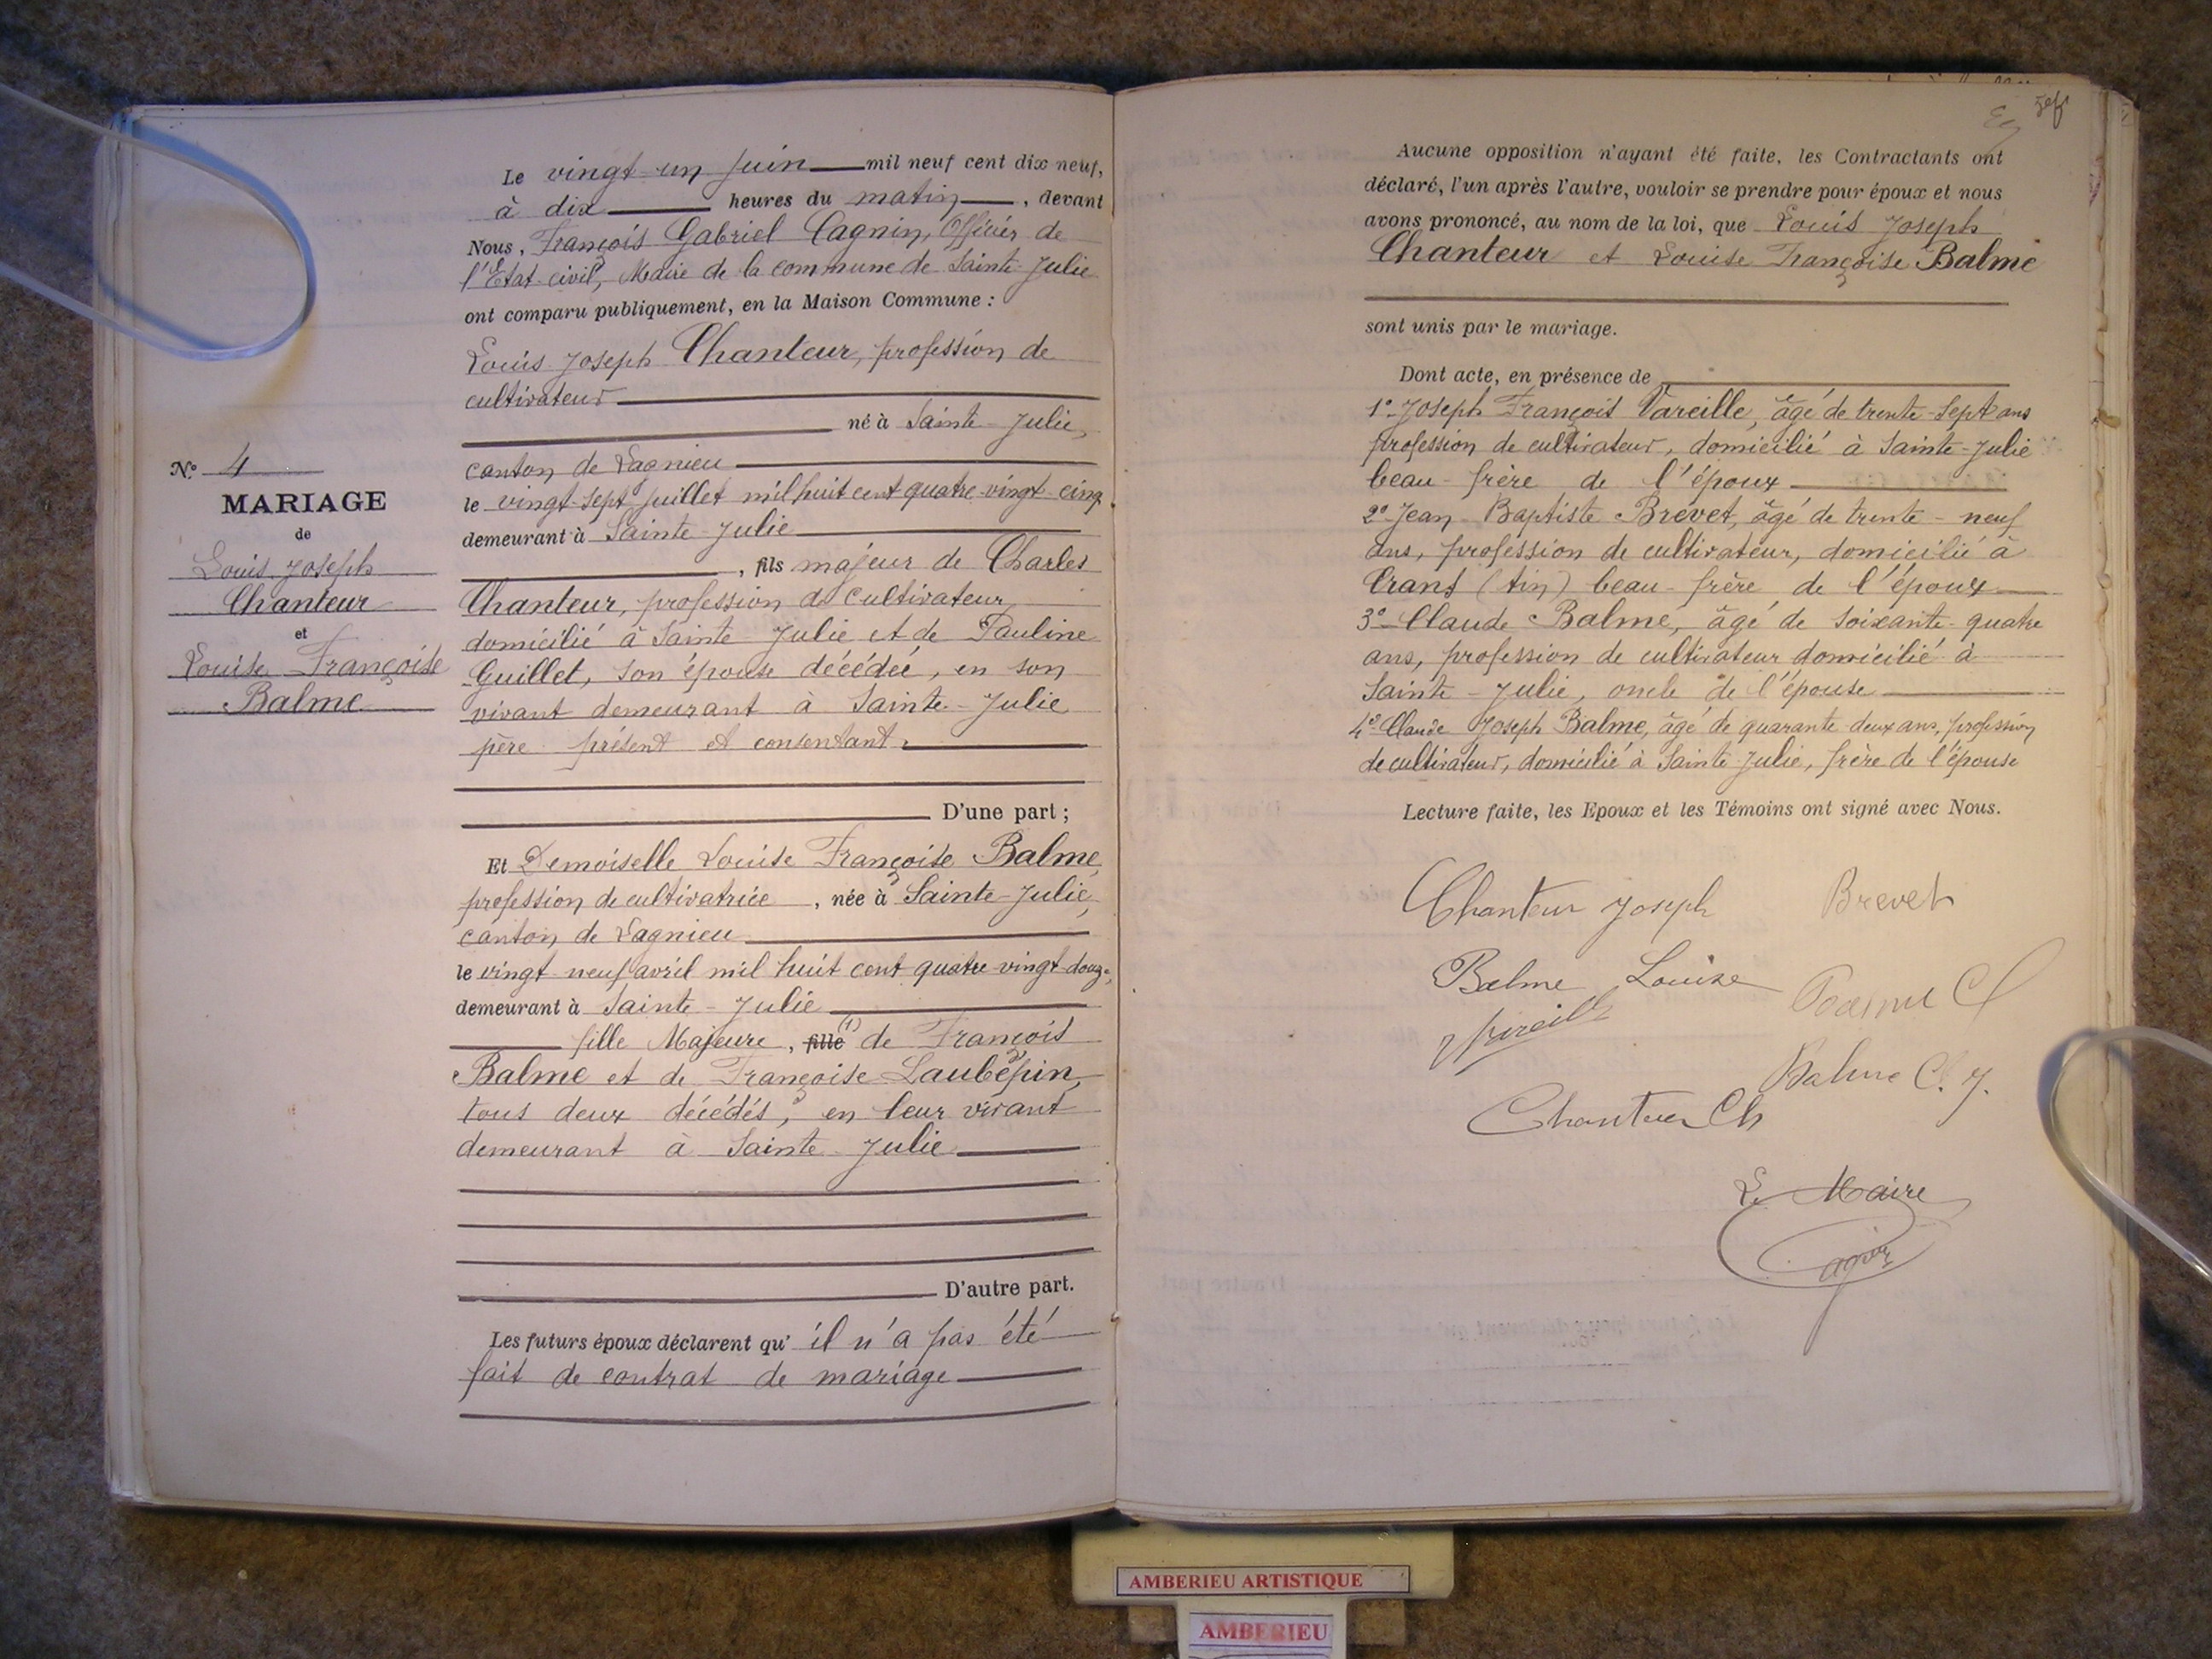 Le vingt un juin mil neuf cent dix neuf,
à dix heures du matin, devant
Nous, François Gabriel Cagnin, Officier de
l'Etat-civil, Maire de la commune de Sainte-Julie
ont comparu publiquement, en la Maison Commune :
Louis Joseph Chanteur, profession de
cultivateur
né à Sainte-Julie,
canton de Lagnieu
le vingt-sept juillet mil huit cent quatre-vingt-cinq
demeurant à Sainte-Julie
, fils majeur de Charles
Chanteur, profession de cultivateur
domicilié à Sainte-Julie et de Pauline
Guillet, son épouse décédée, en son
vivant demeurant à Sainte-Julie
père présent et consentant.
D'une part ;
Et Demoiselle Louise Françoise Balme,
profession de cultivatrice, née à Sainte-Julie,
canton de Lagnieu
le vingt neuf avril mil huit cent quatre-vingt-douze,
demeurant à Sainte-Julie
fille Majeure, fille (1) de François
Balme et de Françoise Laubépin,
tous deux décédés, en leur vivant
demeurant à Sainte-Julie
D'autre part.
Les futurs époux déclarent qu' il n'a pas été
fait de contrat de mariage
N° 4
MARIAGE
de
Louis Joseph
Chanteur
et
Louise Françoise
Balme
Aucune opposition n'ayant été faite, les Contractants ont
déclaré, l'un après l'autre, vouloir se prendre pour époux et nous
avons prononcé, au nom de la loi, que Louis Joseph
Chanteur et Louise Françoise Balme
sont unis par le mariage.
Dont acte, en présence de
1° Joseph François Vareille, âgé de trente-sept ans
profession de cultivateur, domicilié à Sainte-Julie
beau-frère de l'époux
2° Jean-Baptiste Brevet, âgé de trente-neuf
ans, profession de cultivateur, domicilié à
Crans (Ain) beau-frère de l'époux
3° Claude Balme, âgé de soixante-quatre
ans, profession de cultivateur domicilié à
Sainte-Julie, oncle de l'épouse
4° Claude Joseph Balme, âgé de quarante-deux ans, profession
de cultivateur, domicilié à Sainte-Julie, frère de l'épouse
Lecture faite, les Epoux et les Témoins ont signé avec Nous.
Chanteur Joseph Brevet
Balme Louise
Balme C
Balme C. J.
Chanteur Ch
Le Maire
Cagnin
AMBERIEU ARTISTIQUE
AMBERIEU